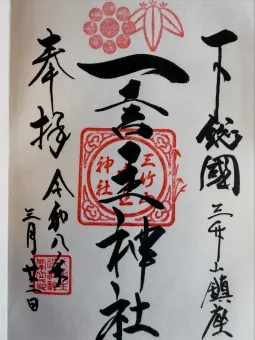 下総國
三竹山鎮座
一言主神社
三竹
神社
奉拝
令和八年
三月